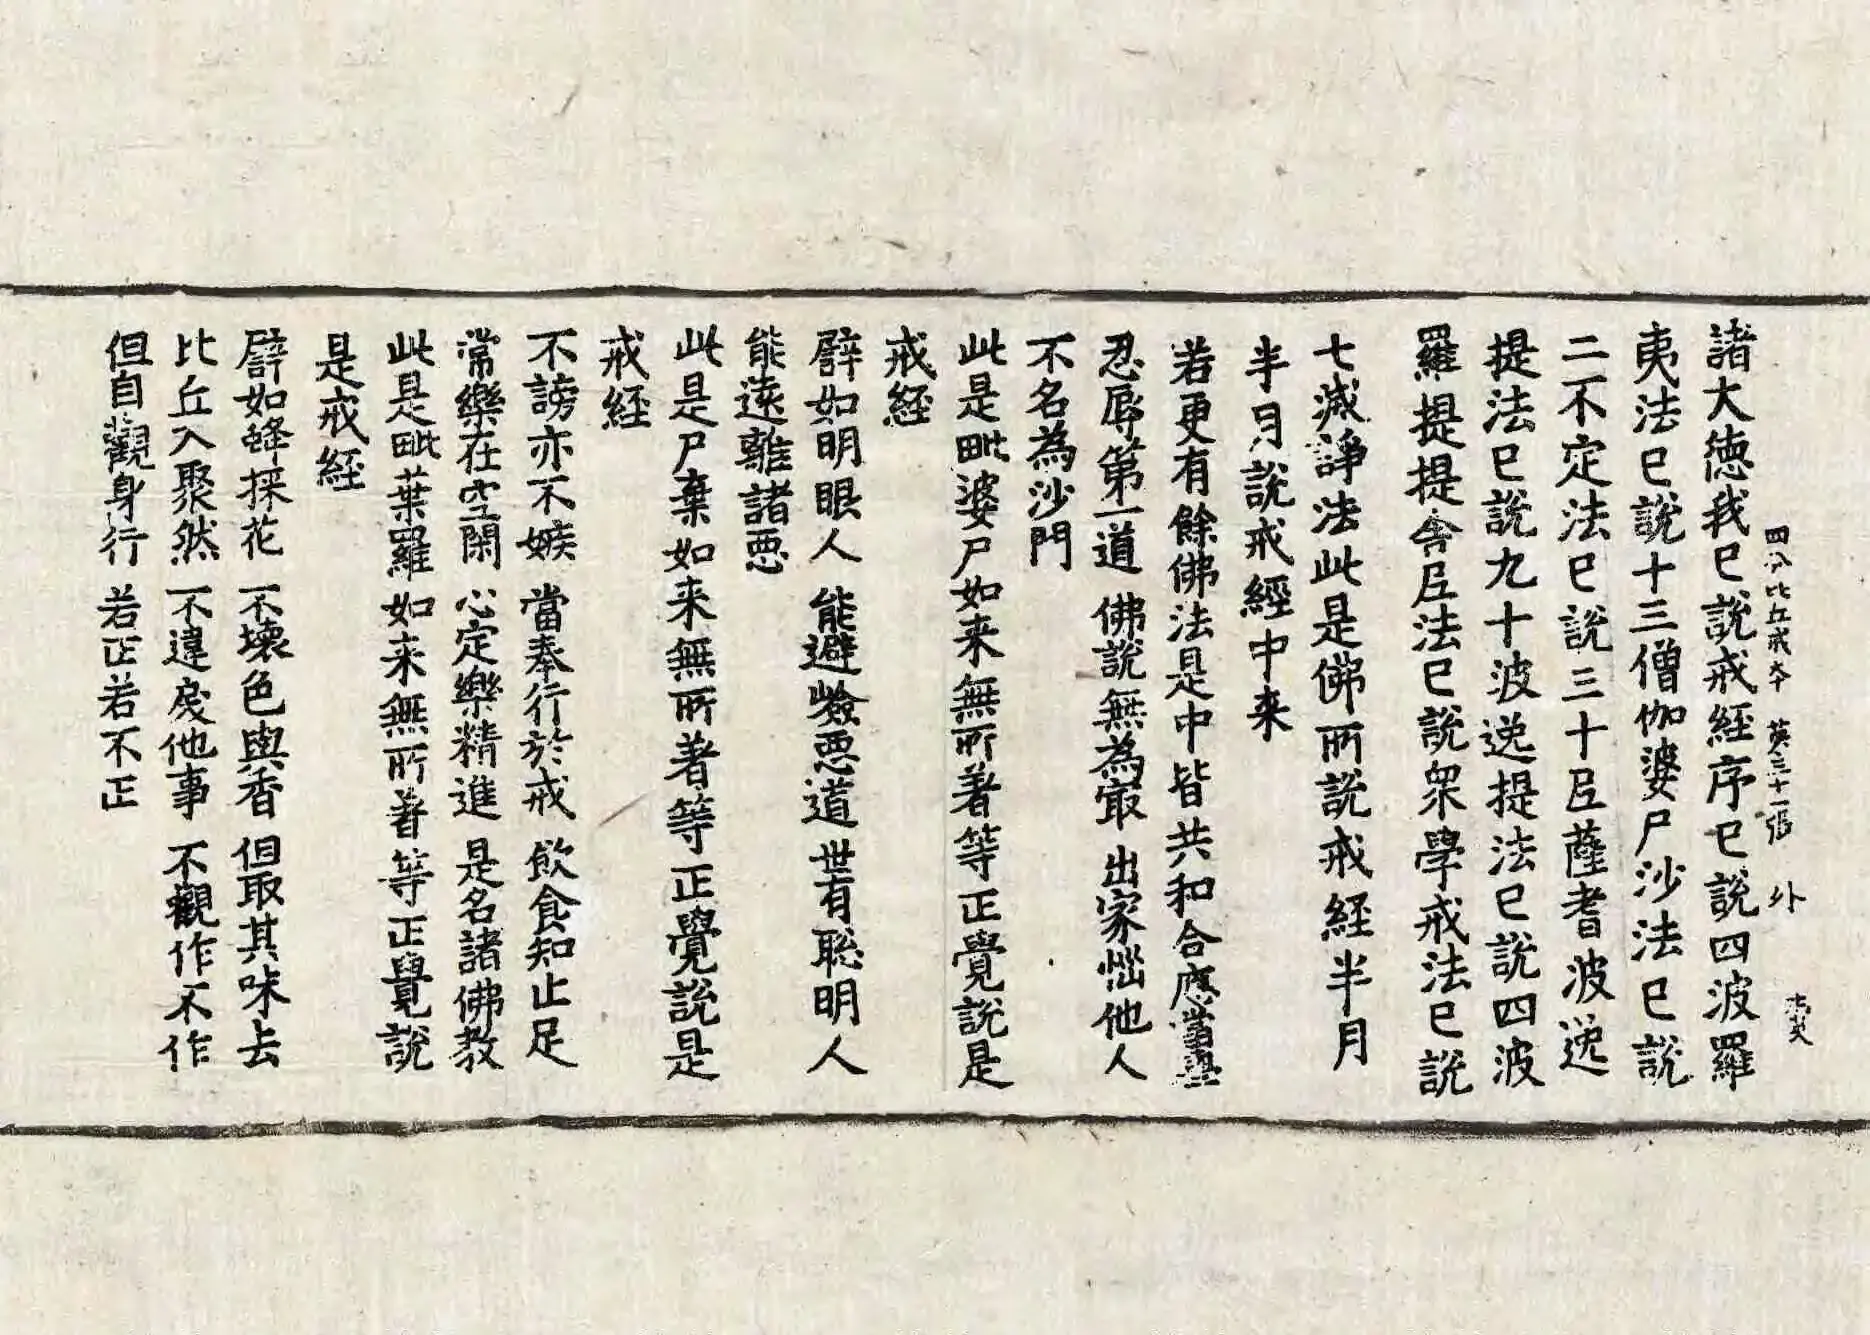 諸大德我已說戒經序已說四波羅
四分比丘戒本　英　三十一張　外
夷法已說十三僧伽婆尸沙法已說
二不定法已說三十尼薩耆波逸
提法已說九十波逸提法已說四波
羅提提舍尼法已說衆學戒法已說
七滅諍法此是佛所說戒經半月
半月說戒經中来
若更有餘佛法是中皆共和合應當學
忍辱第一道　佛說無為最　出家惱他人
不名為沙門
此是毗婆尸如来無所著等正覺說是
戒経
譬如明眼人　能避嶮惡道　世有聡明人
能遠離諸惡
此是尸棄如来無所著等正覺說是
戒経
不謗亦不嫉　當奉行於戒　飲食知止足
常樂在空閑　心定樂精進　是名諸佛教
此是毗葉羅如来無所著等正覺說
是戒経
譬如蜂採花　不壞色與香　但取其味去
比丘入聚然　不違戾他事　不觀作不作
但自觀身行　若正若不正